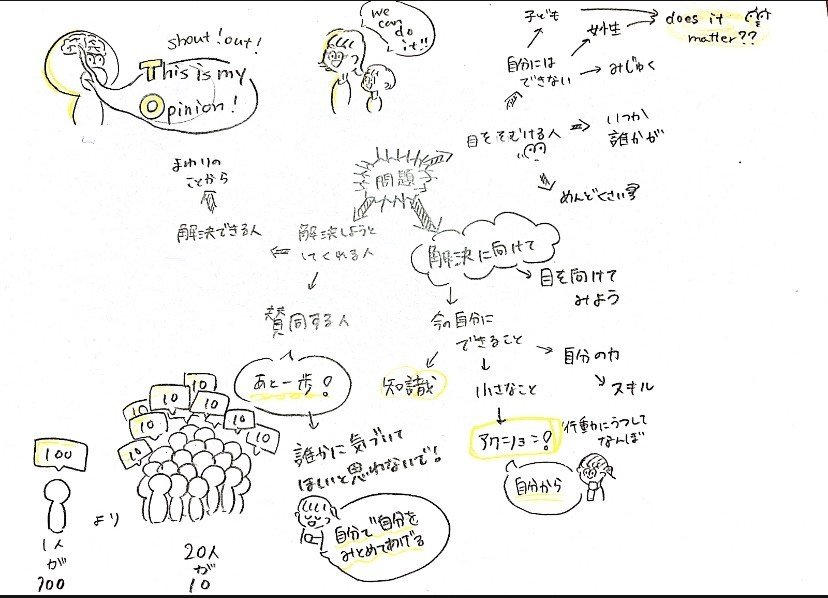 shout! out!
This is my
Opinion!
we
can
do
it!!
子ども
女性
does it
matter??
自分には
できない
みじゅく
目をそむける人
いつか
誰かが
めんどくさい
問題
まわりの
ことから
解決できる人
解決しようと
してくれる人
解決に向けて
目を向けて
みよう
賛同する人
あと一歩!
今の自分に
できること
知識
自分の力
スキル
小さなこと
アクション!
行動にうつして
なんぼ
自分から
誰かに気づいて
ほしいと思わないで!
自分で自分を
みとめてあげる
10
10
10
10
10
10
10
10
100
より
1人
が
100
20人
が
10